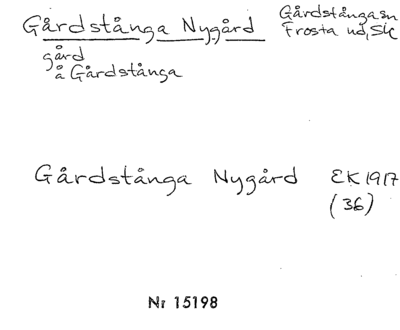 Gårdstånga Nygård Gårdstånga sn
Frosta hd, Sk
gård
å Gårdstånga
Gårdstånga Nygård EK 1917
(36)
Nr 15198